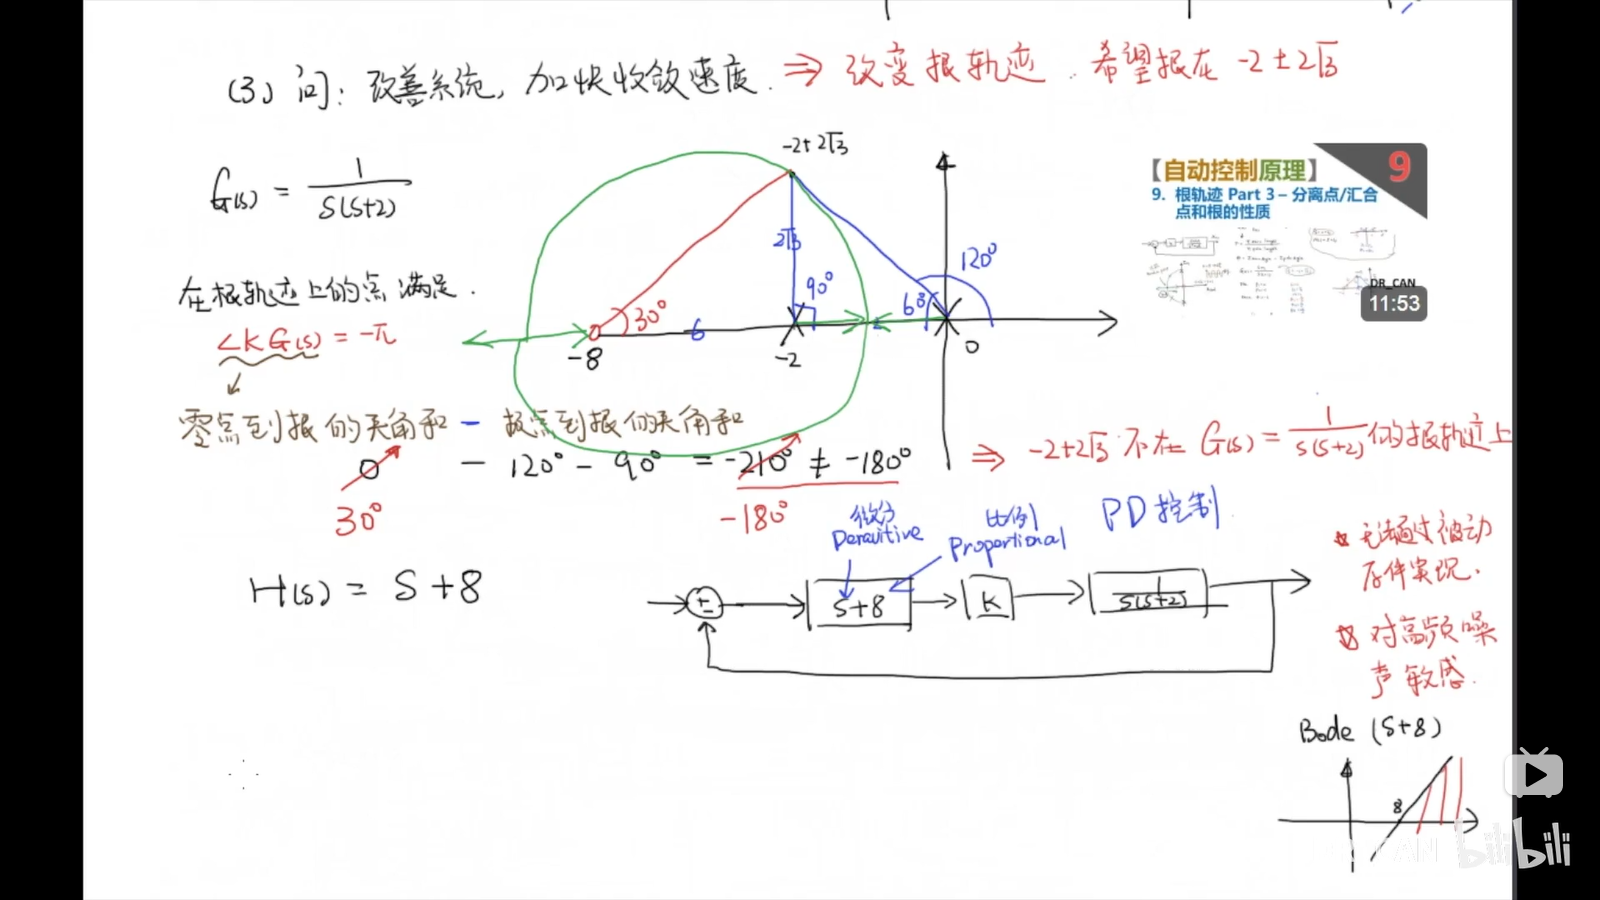 (3) 问: 改善系统, 加快收敛速度. ⇒ 改变根轨迹. 希望根在 -2±2√3
G(s) = 1/S(S+2)
-2+2√3
【自动控制原理】
9
9. 根轨迹 Part 3 – 分离点/汇合
点和根的性质
DR_CAN
11:53
2√3
90°
60°
120°
30°
6
2
-8
-2
0
在根轨迹上的点满足.
∠KG(s) = -π
零点到根的夹角和 - 极点到根的夹角和
0 - 120° - 90° = -210° ≠ -180°
30°
-180°
⇒ -2+2√3 不在 G(s) = 1/S(S+2) 的根轨迹上
微分
Deravitive
比例
Proportional
PD控制
H(s) = S+8
+
-
S+8
K
1/S(S+2)
无法通过被动
存件实现.
对高频噪
声敏感.
Bode (S+8)
8
bilibili